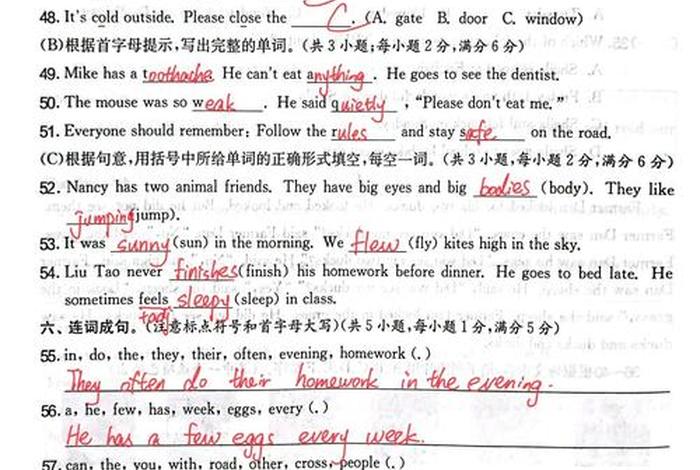 48. It's cold outside. Please close the C. (A. gate B. door C. window)
(B)根据首字母提示,写出完整的单词。(共3小题;每小题2分,满分6分)
49. Mike has a toothache. He can't eat anything. He goes to see the dentist.
50. The mouse was so weak. He said quietly, “Please don't eat me.”
51. Everyone should remember: Follow the rules and stay safe on the road.
(C)根据句意,用括号中所给单词的正确形式填空,每空一词。(共3小题,每小题2分,满分6分)
52. Nancy has two animal friends. They have big eyes and big bodies (body). They like
jumping (jump).
53. It was sunny (sun) in the morning. We flew (fly) kites high in the sky.
54. Liu Tao never finishes (finish) his homework before dinner. He goes to bed late. He
sometimes feels sleepy (sleep) in class.
六、连词成句。(注意标点符号和首字母大写)(共5小题,每小题1分,满分5分)
55. in, do, the, they, their, often, evening, homework (.)
They often do their homework in the evening.
56. a, he, few, has, week, eggs, every (.)
He has a few eggs every week.
57. can, the, you, with, road, other, cross, people (.)